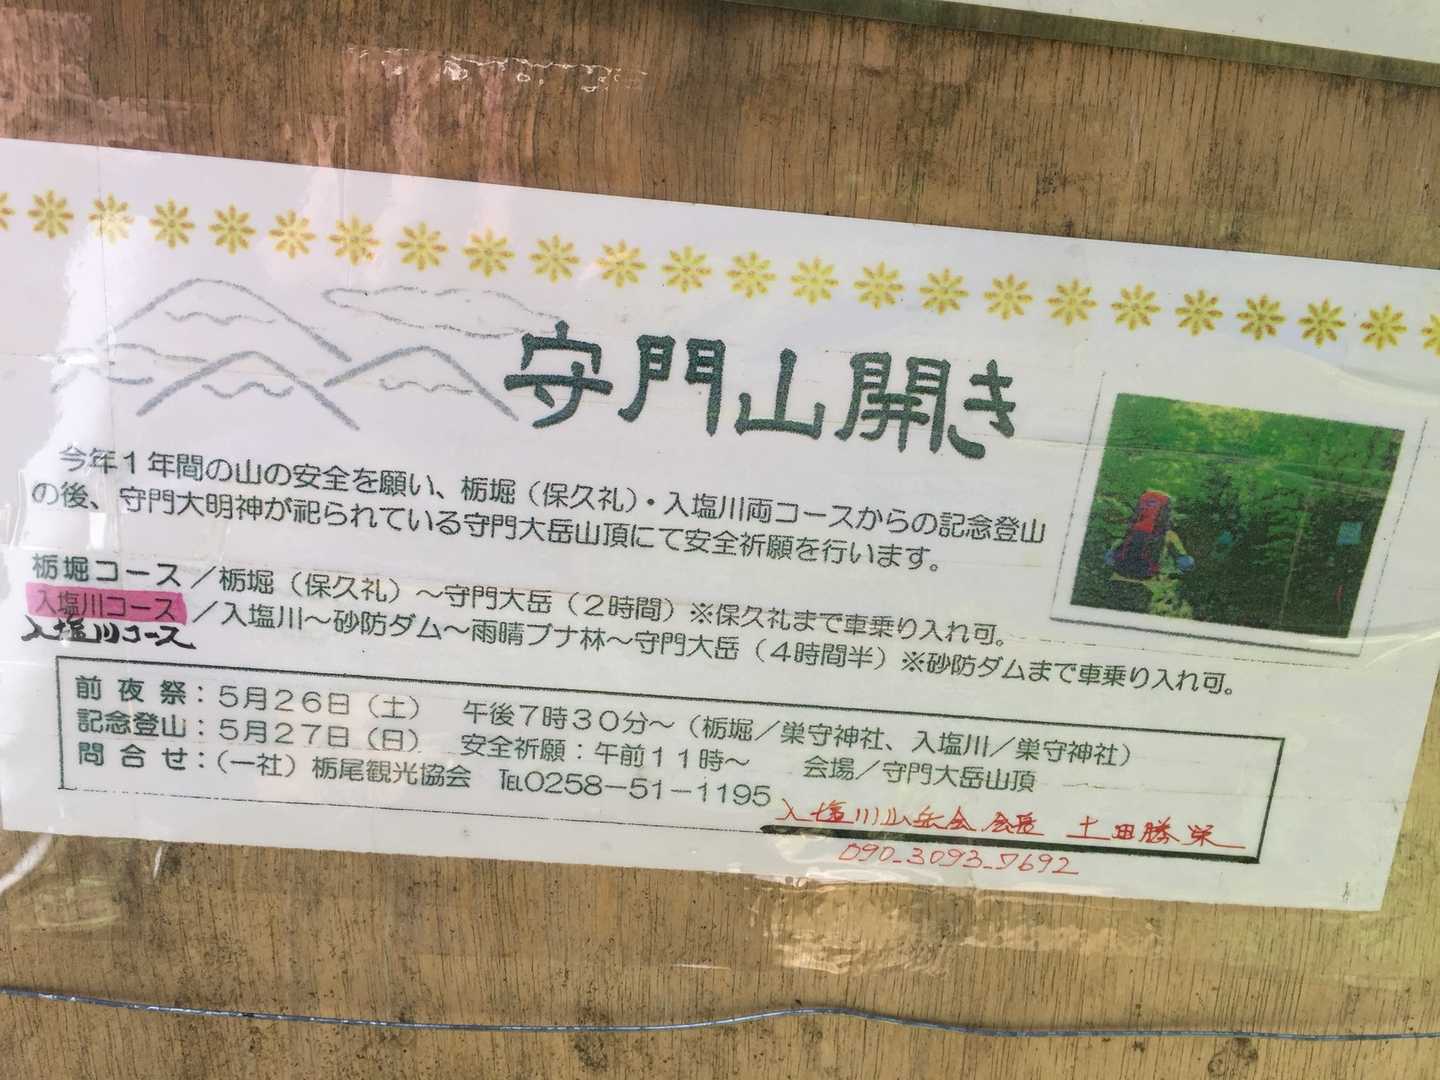 守門山開き
今年1年間の山の安全を願い、栃堀（保久礼）・入塩川両コースからの記念登山
の後、守門大明神が祀られている守門大岳山頂にて安全祈願を行います。
栃堀コース／栃堀（保久礼）～守門大岳（2時間）※保久礼まで車乗り入れ可。
入塩川コース／入塩川～砂防ダム～雨晴ブナ林～守門大岳（4時間半）※砂防ダムまで車乗り入れ可。
入塩川コース
前夜祭：5月26日（土）　午後7時30分～（栃堀／巣守神社、入塩川／巣守神社）
記念登山：5月27日（日）　安全祈願：午前11時～　会場／守門大岳山頂
問合せ：（一社）栃尾観光協会　℡0258－51－1195
入塩川山岳会 会長　土田勝栄
090-3093-7692